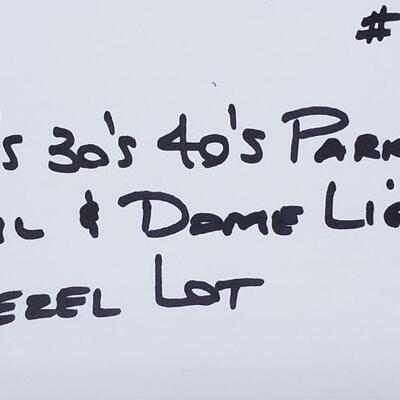 #
's 30's 40's PARK
IL & DOME LIG
EZEL LOT